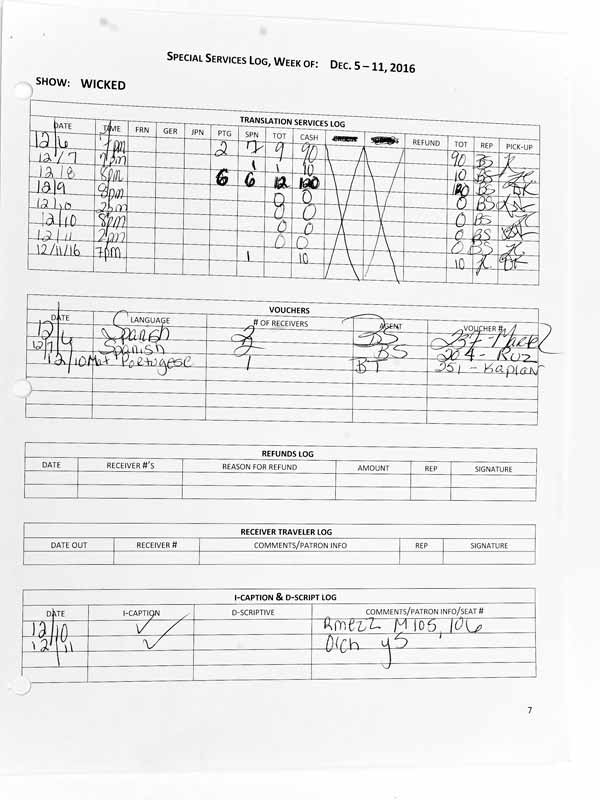 SPECIAL SERVICES LOG, WEEK OF: DEC. 5 – 11, 2016
SHOW: WICKED
TRANSLATION SERVICES LOG
DATE TIME FRN GER JPN PTG SPN TOT CASH REFUND TOT REP PICK-UP
12/6 7pm 2 7 9 90 90 BS
12/7 1 1 10 10 BS
12/8 8pm 6 6 12 120 120 BS
12/9 8pm 0 0 0 BS
12/10 2pm 0 0 0 BS
12/10 8pm 0 0 0 BS
12/11 2pm 0 0 0 BS
12/11/16 7pm 1 10 10
VOUCHERS
DATE LANGUAGE # OF RECEIVERS AGENT VOUCHER #
12/6 Spanish 2 BS 237-
12/7 Spanish 2 BS 264 - Ruz
12/10 Mat Portugese 1 BT 251 - Kaplan
REFUNDS LOG
DATE RECEIVER #'S REASON FOR REFUND AMOUNT REP SIGNATURE
RECEIVER TRAVELER LOG
DATE OUT RECEIVER # COMMENTS/PATRON INFO REP SIGNATURE
I-CAPTION & D-SCRIPT LOG
DATE I-CAPTION D-SCRIPTIVE COMMENTS/PATRON INFO/SEAT #
12/10 ✓ Rmezz M105, 106
12/11 ✓ Orch y5
7